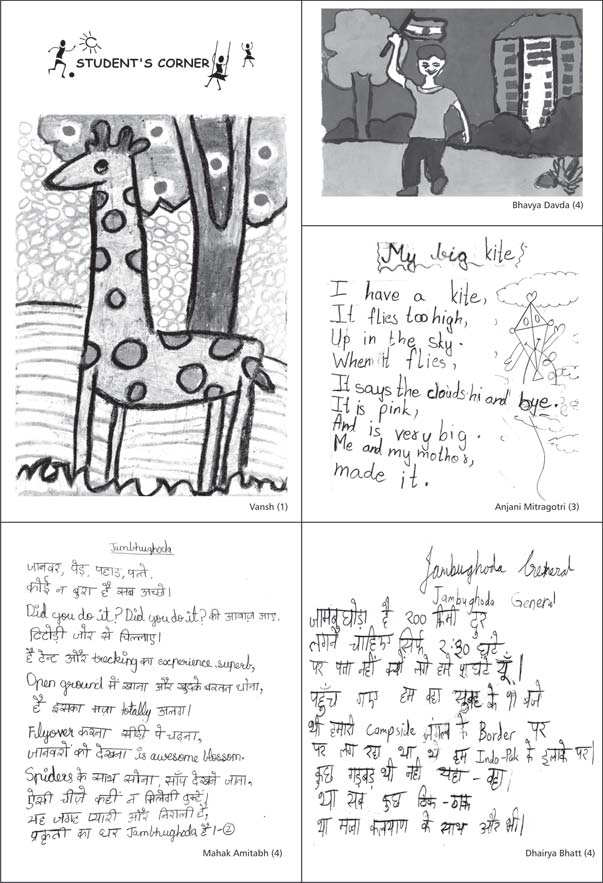 STUDENT'S CORNER
Vansh (1)
Bhavya Davda (4)
My big kite
I have a kite,
It flies too high,
Up in the sky.
When it flies,
It says the clouds hi and bye.
It is pink,
And is very big.
Me and my mother,
made it.
Anjani Mitragotri (3)
Jambhughoda
जानवर, पेड़, पहाड़, पत्ते.
कोई न बुरा है सब अच्छे।
Did you do it? Did you do it? की आवाज़ आए.
टिटोड़ी जोर से चिल्लाए।
है टेन्ट और tracking का excperience superb,
Open ground में खाना और खुदके बरतन धोना,
है इसका मज़ा totally अलग।
Flyover करना सीढी पे चढ़ना,
जानवरों को देखना is awesome blossom.
Spiders के साथ सोना, साँप देखने जाना,
ऐसी चीज़े कहीं न मिलेगी तुम्हें।
यह जगह प्यारी और निराली है,
प्रकृती का घर Jambhughoda है।-②
Mahak Amitabh (4)
Jambughoda General
Jambughoda General
जाम्बुघोड़ा है 200 किमी दुर
लगने चाहिए सिर्फ 2:30 घंटे
पर पता नहीं क्यों लगे हमे घंटे यूँ।
पहुँच गए हम वहा सुबह के बजे
थी हमारी Campside जंगल के Border पर
पर लग रहा था थे हम Indo-Pak के इलाके पर।
कुछ गड़बड़ थी नही यहा-वहा।
था सब कुछ ठिक-ठाक
था मजा कलयाण के साथ और भी।
Dhairya Bhatt (4)